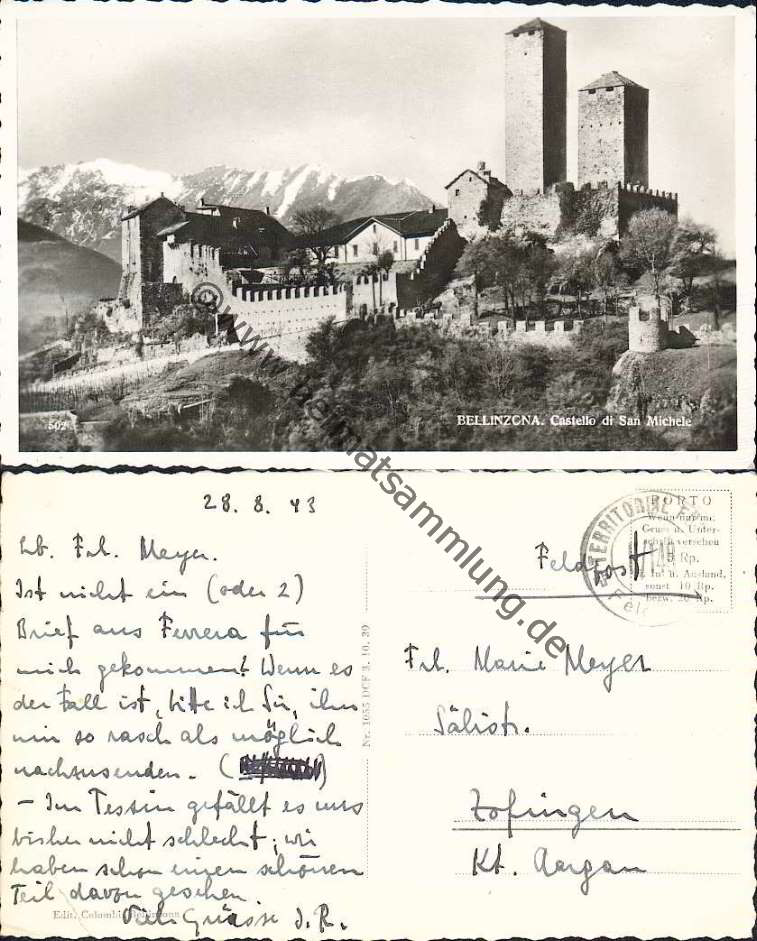 502
BELLINZONA. Castello di San Michele
© www.heimatsammlung.de
28. 8. 43
Lb. Frl. Meyer.
Ist nicht ein (oder 2)
Brief aus Ferrera für
mich gekommen? Wenn es
der Fall ist, bitte ich Sie, ihn
mir so rasch als möglich
nachzusenden. (
– Im Tessin gefällt es uns
bisher nicht schlecht; wir
haben schon einen schönen
Teil davon gesehen.
Viele Grüsse J. R.
Edit. Colombi Bellinzona
Nr. 1655 DCF 3. 10. 39
PORTO
Wenn nur m.
Gruss u. Unter-
schrift versehen
5 Rp.
In- u. Ausland,
sonst 10 Rp.
bezw. 20 Rp.
TERRITORIAL
Feldpost
Frl. Marie Meyer
Sälistr.
Zofingen
Kt. Aargau